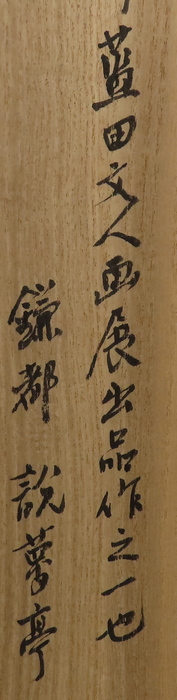 藍田文人画展出品作之一也
鎌都 説夢亭